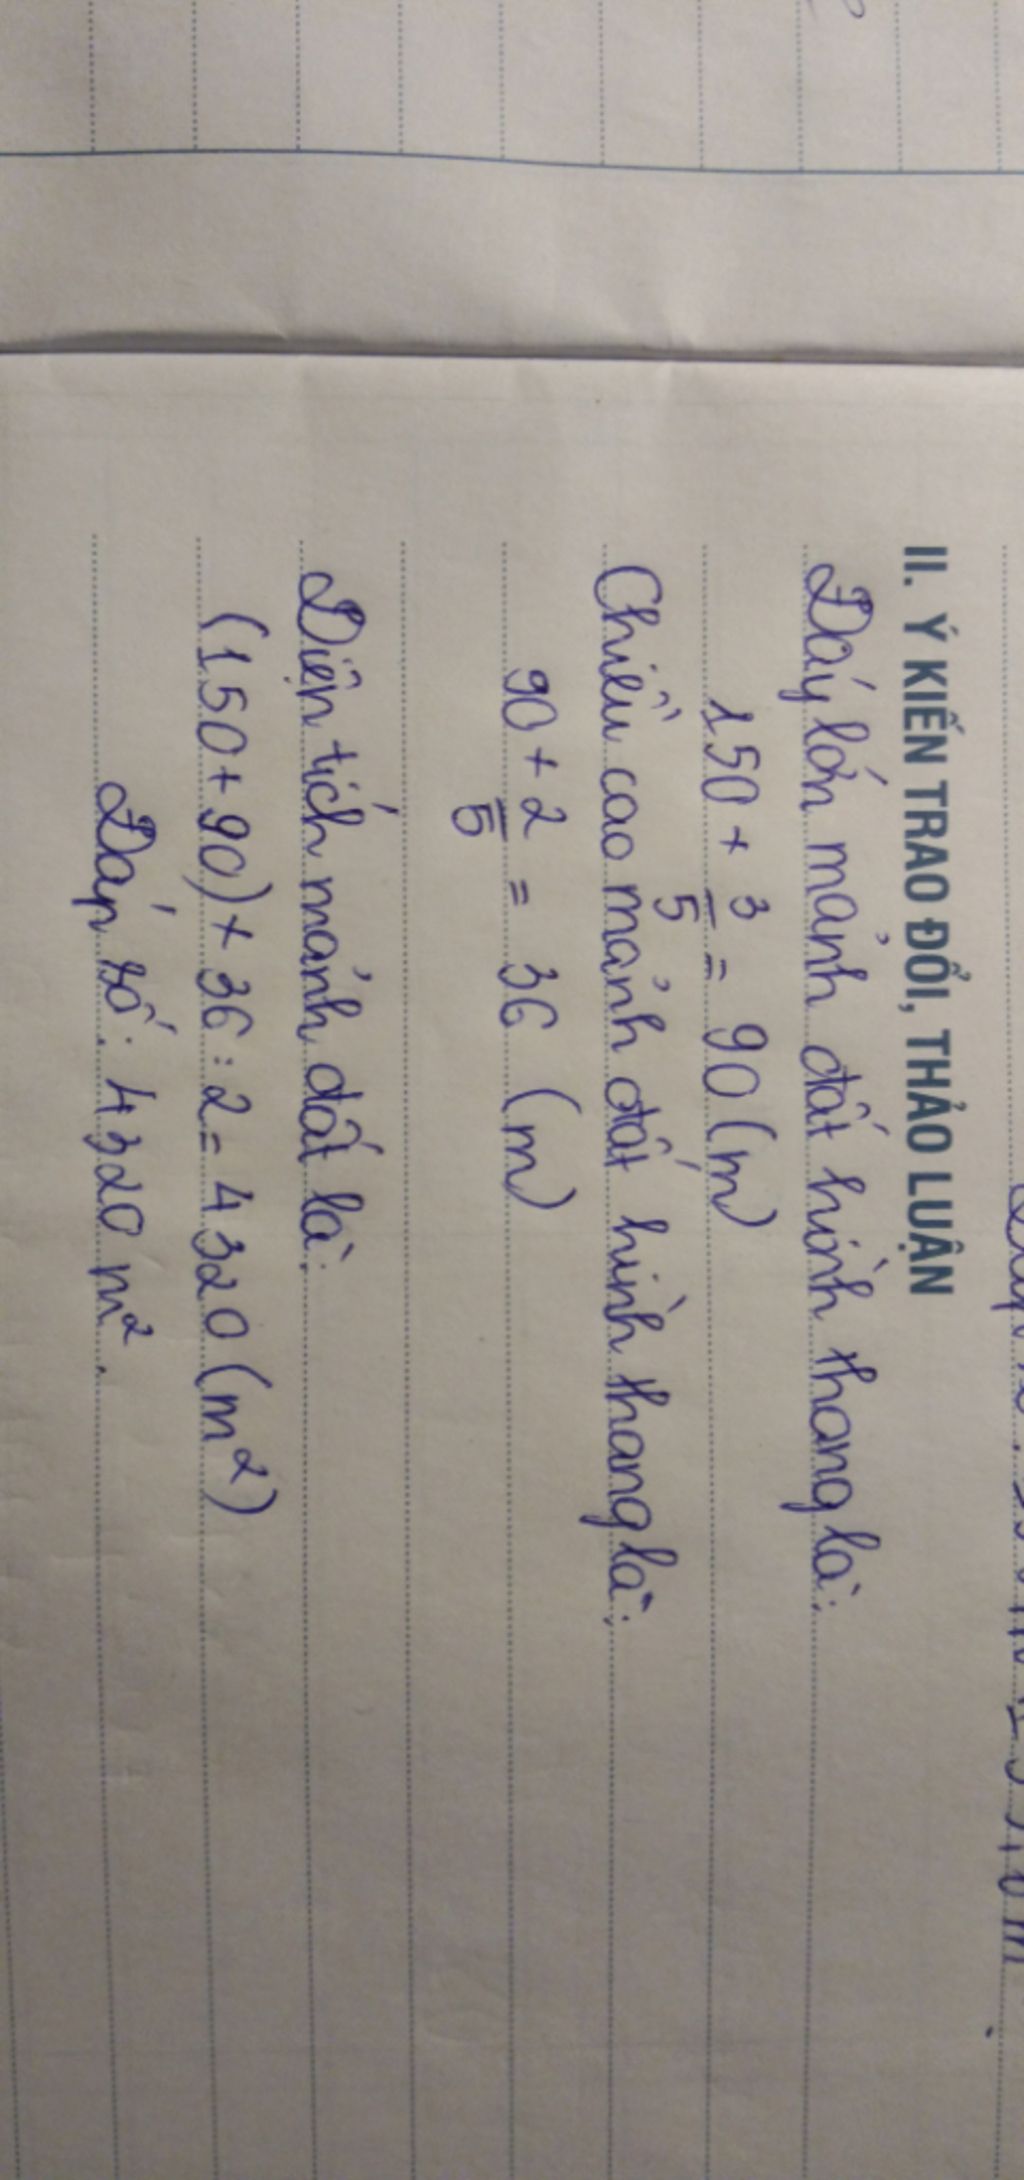 II. Ý KIẾN TRAO ĐỔI, THẢO LUẬN
Đáy lớn mảnh đất hình thang là:
150 × 3/5 = 90 (m)
Chiều cao mảnh đất hình thang là:
90 × 2/5 = 36 (m)
Diện tích mảnh đất là:
(150 + 90) × 36 : 2 = 4320 (m²)
Đáp số: 4320 m².